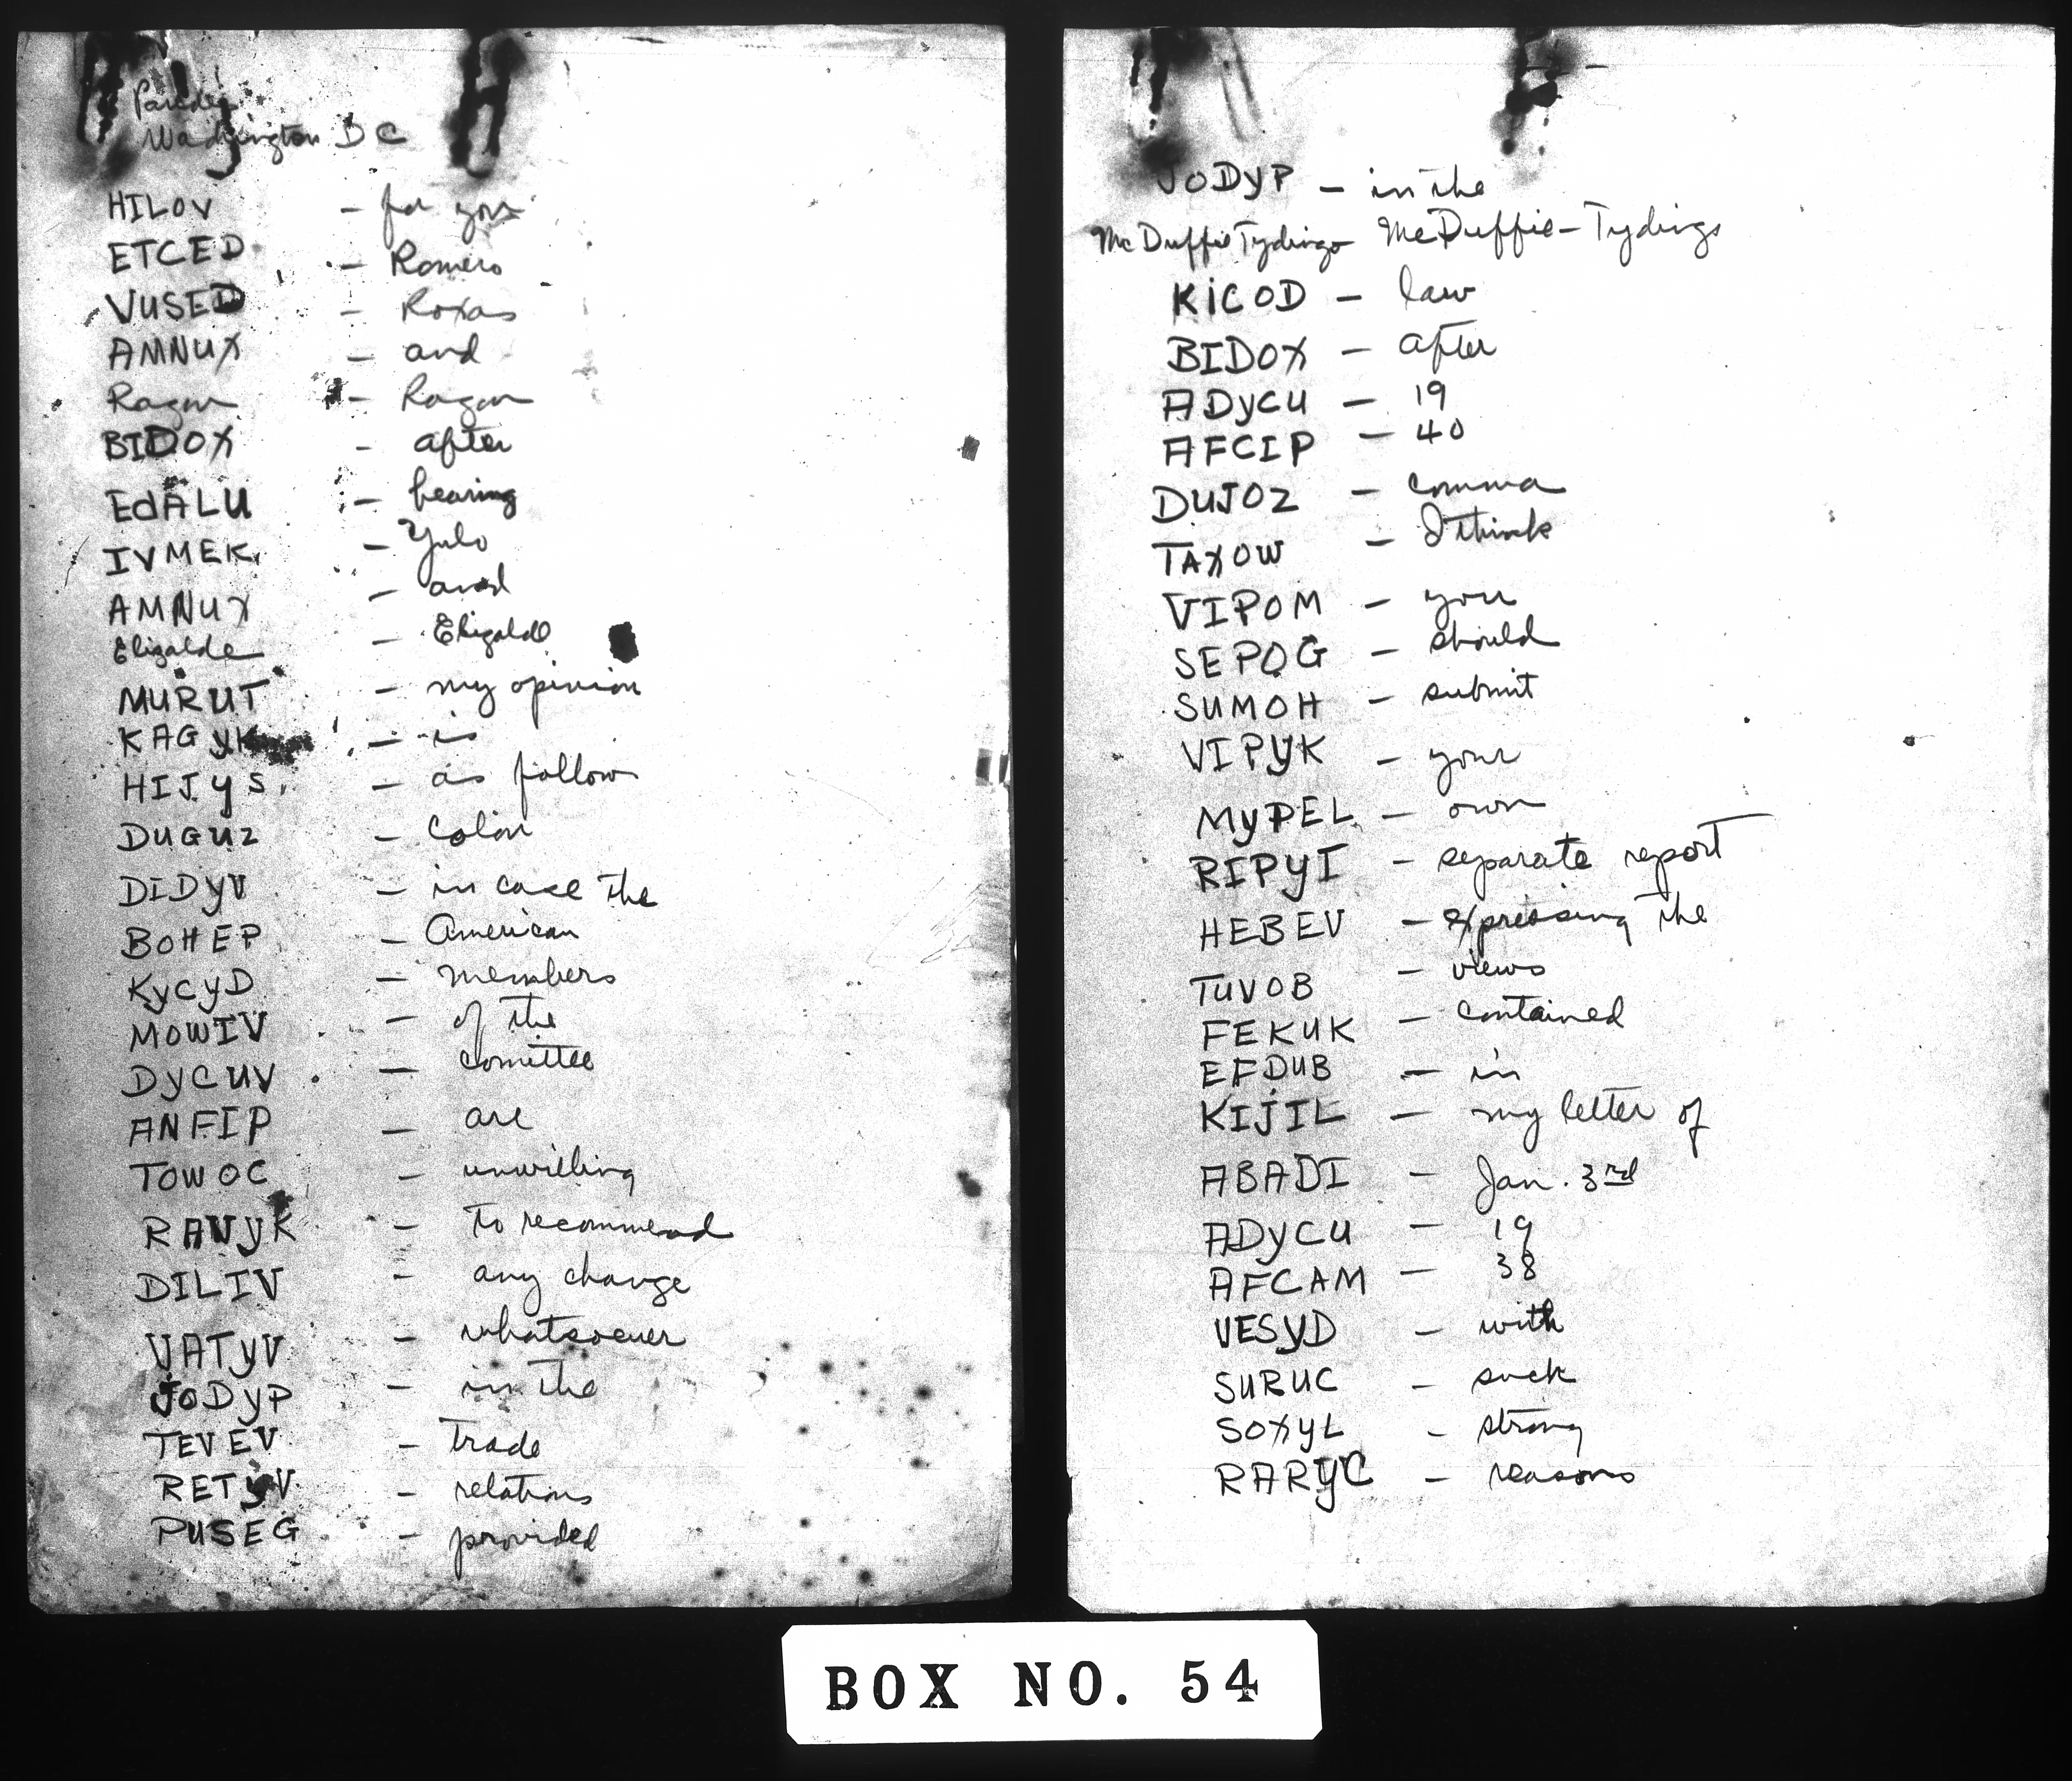 Paredes
Washington D C
HILOV - for you
ETCED - Romero
VUSED - Roxas
AMNUX - and
Ragon - Ragon
BIDOX - after
EdALU - hearing
IVMEK - Yulo
AMNUX - and
Elizalde - Elizalde
MURUT - my opinion
KAGYK - is
HIJYS - as follow
DUGUZ - Colon
DIDYV - in case the
BOHEP - American
KYCYD - members
MOWIV - of the
DYCUV - comittee
ANFIP - are
TOWOC - unwilling
RAVYK - to recommend
DILIV - any change
VATYV - whatsoever
JODYP - in the
TEVEV - trade
RETYV - relations
PUSEG - provided
JODYP - in the
McDuffie Tydings McDuffie-Tydings
KICOD - law
BIDOX - after
ADYCU - 19
AFCIP - 40
DUJOZ - comma
TAXOW - I think
VIPOM - you
SEPOG - should
SUMOH - submit
VIPYK - your
MYPEL - own
RIPYI - separate report
HEBEV - expressing the
TUVOB - views
FEKUK - contained
EFDUB - in
KIJIL - my letter of
ABADI - Jan. 3rd
ADYCU - 19
AFCAM - 38
VESYD - with
SURUC - such
SOXYL - strong
RARYC - reasons
BOX NO. 54